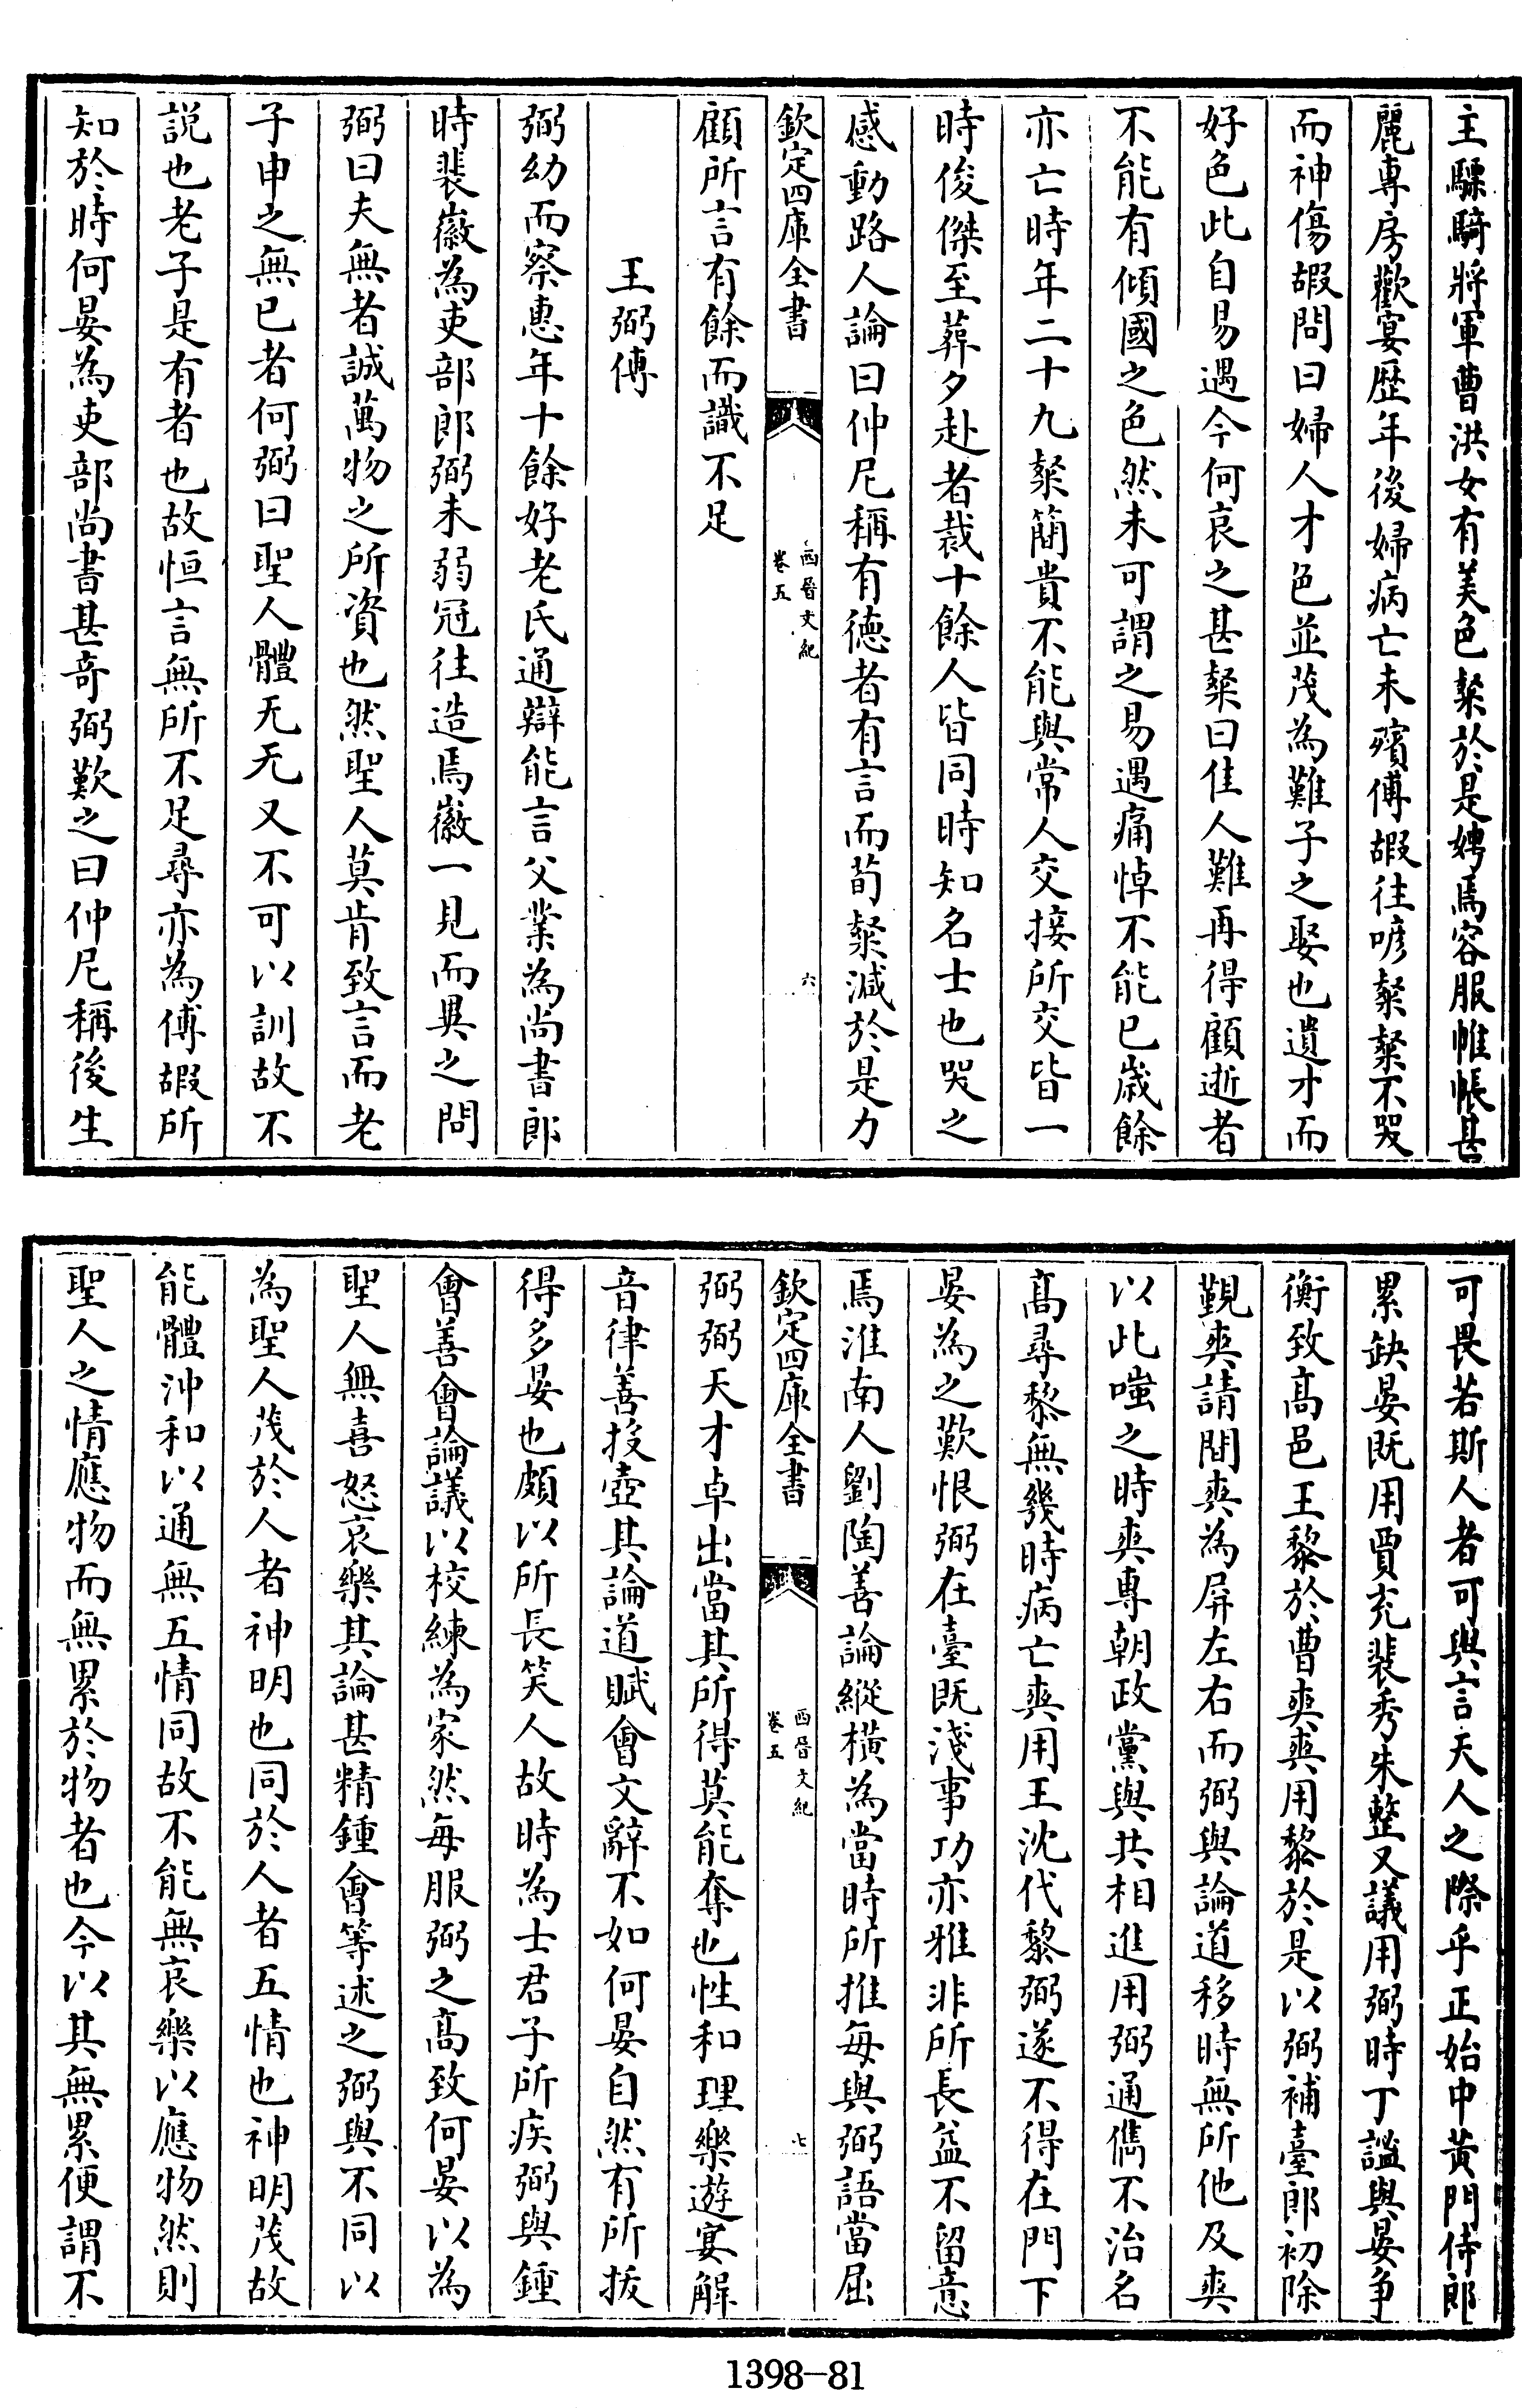 主驃騎將軍曹洪女有美色粲於是娉焉容服帷帳甚
麗專房歡宴歷年後婦病亡未殯傅嘏往喭粲粲不哭
而神傷嘏問曰婦人才色並茂為難子之娶也遺才而
好色此自易遇今何哀之甚粲曰佳人難再得顧逝者
不能有傾國之色然未可謂之易遇痛悼不能已歳餘
亦亡時年二十九粲簡貴不能與常人交接所交皆一
時俊傑至葬夕赴者裁十餘人皆同時知名士也哭之
感動路人論曰仲尼稱有徳者有言而荀粲減於是力
欽定四庫全書
西晉文紀
卷五
六
顧所言有餘而識不足
王弼傳
弼幼而察惠年十餘好老氏通辯能言父業為尚書郎
時裴徽為吏部郎弼未弱冠往造焉徽一見而異之問
弼曰夫無者誠萬物之所資也然聖人莫肯致言而老
子申之無已者何弼曰聖人體无无又不可以訓故不
説也老子是有者也故恒言無所不足尋亦為傅嘏所
知於時何晏為吏部尚書甚奇弼歎之曰仲尼稱後生
可畏若斯人者可與言天人之際乎正始中黄門侍郎
累缺晏既用賈充裴秀朱整又議用弼時丁謐與晏爭
衡致髙邑王黎於曹爽爽用黎於是以弼補臺郎初除
覲爽請間爽為屏左右而弼與論道移時無所他及爽
以此嗤之時爽專朝政黨與共相進用弼通儁不治名
髙尋黎無幾時病亡爽用王沈代黎弼遂不得在門下
晏為之歎恨弼在臺既淺事功亦雅非所長益不留意
焉淮南人劉陶善論縱横為當時所推每與弼語當屈
欽定四庫全書
西晉文紀
卷五
七
弼弼天才卓出當其所得莫能奪也性和理樂遊宴解
音律善投壺其論道賦會文辭不如何晏自然有所拔
得多晏也頗以所長笑人故時為士君子所疾弼與鍾
會善會論議以校練為家然每服弼之髙致何晏以為
聖人無喜怒哀樂其論甚精鍾會等述之弼與不同以
為聖人茂於人者神明也同於人者五情也神明茂故
能體沖和以通無五情同故不能無哀樂以應物然則
聖人之情應物而無累於物者也今以其無累便謂不
1398-81